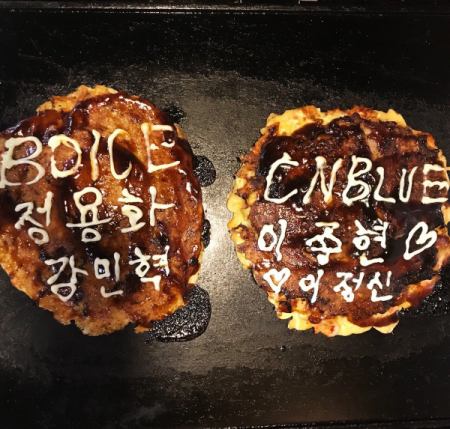 BOICE
정용화
강민혁
CNBLUE
이종현♡
♡이정신